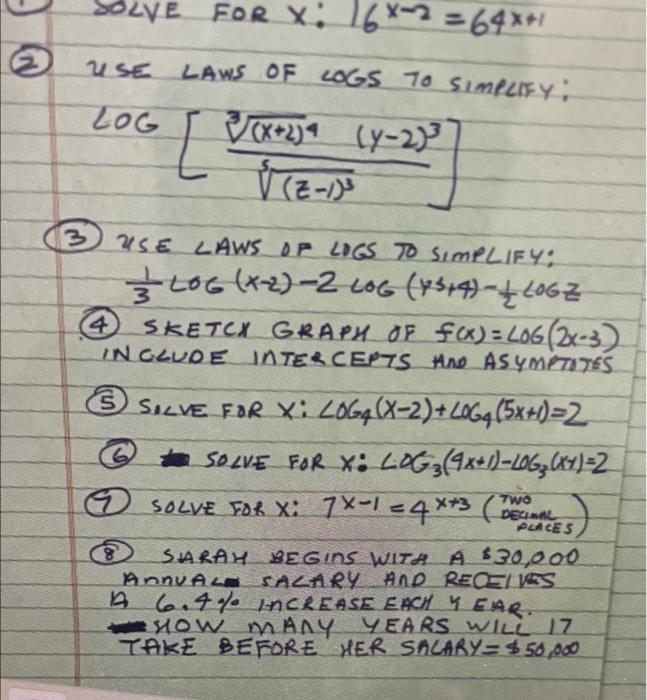 ① SOLVE FOR X: 16^(x-2) = 64^(x+1)
② USE LAWS OF LOGS TO SIMPLIFY:
LOG [ ∛(x+2)⁴ (y-2)³ / ⁵√(z-1)³ ]
③ USE LAWS OF LOGS TO SIMPLIFY:
1/3 LOG (x-2) - 2 LOG (y³+4) - 1/2 LOG Z
④ SKETCH GRAPH OF f(x) = LOG(2x-3)
INCLUDE INTERCEPTS AND ASYMPTOTES
⑤ SOLVE FOR X: LOG₄(x-2)+LOG₄(5x+1)=2
⑥ SOLVE FOR X: LOG₃(4x+1)-LOG₃(x+1)=2
⑦ SOLVE FOR X: 7^(x-1) = 4^(x+3) (TWO DECIMAL PLACES)
⑧ SARAH BEGINS WITH A $30,000
ANNUAL SALARY AND RECEIVES
A 6.4% INCREASE EACH YEAR.
HOW MANY YEARS WILL IT
TAKE BEFORE HER SALARY = $50,000